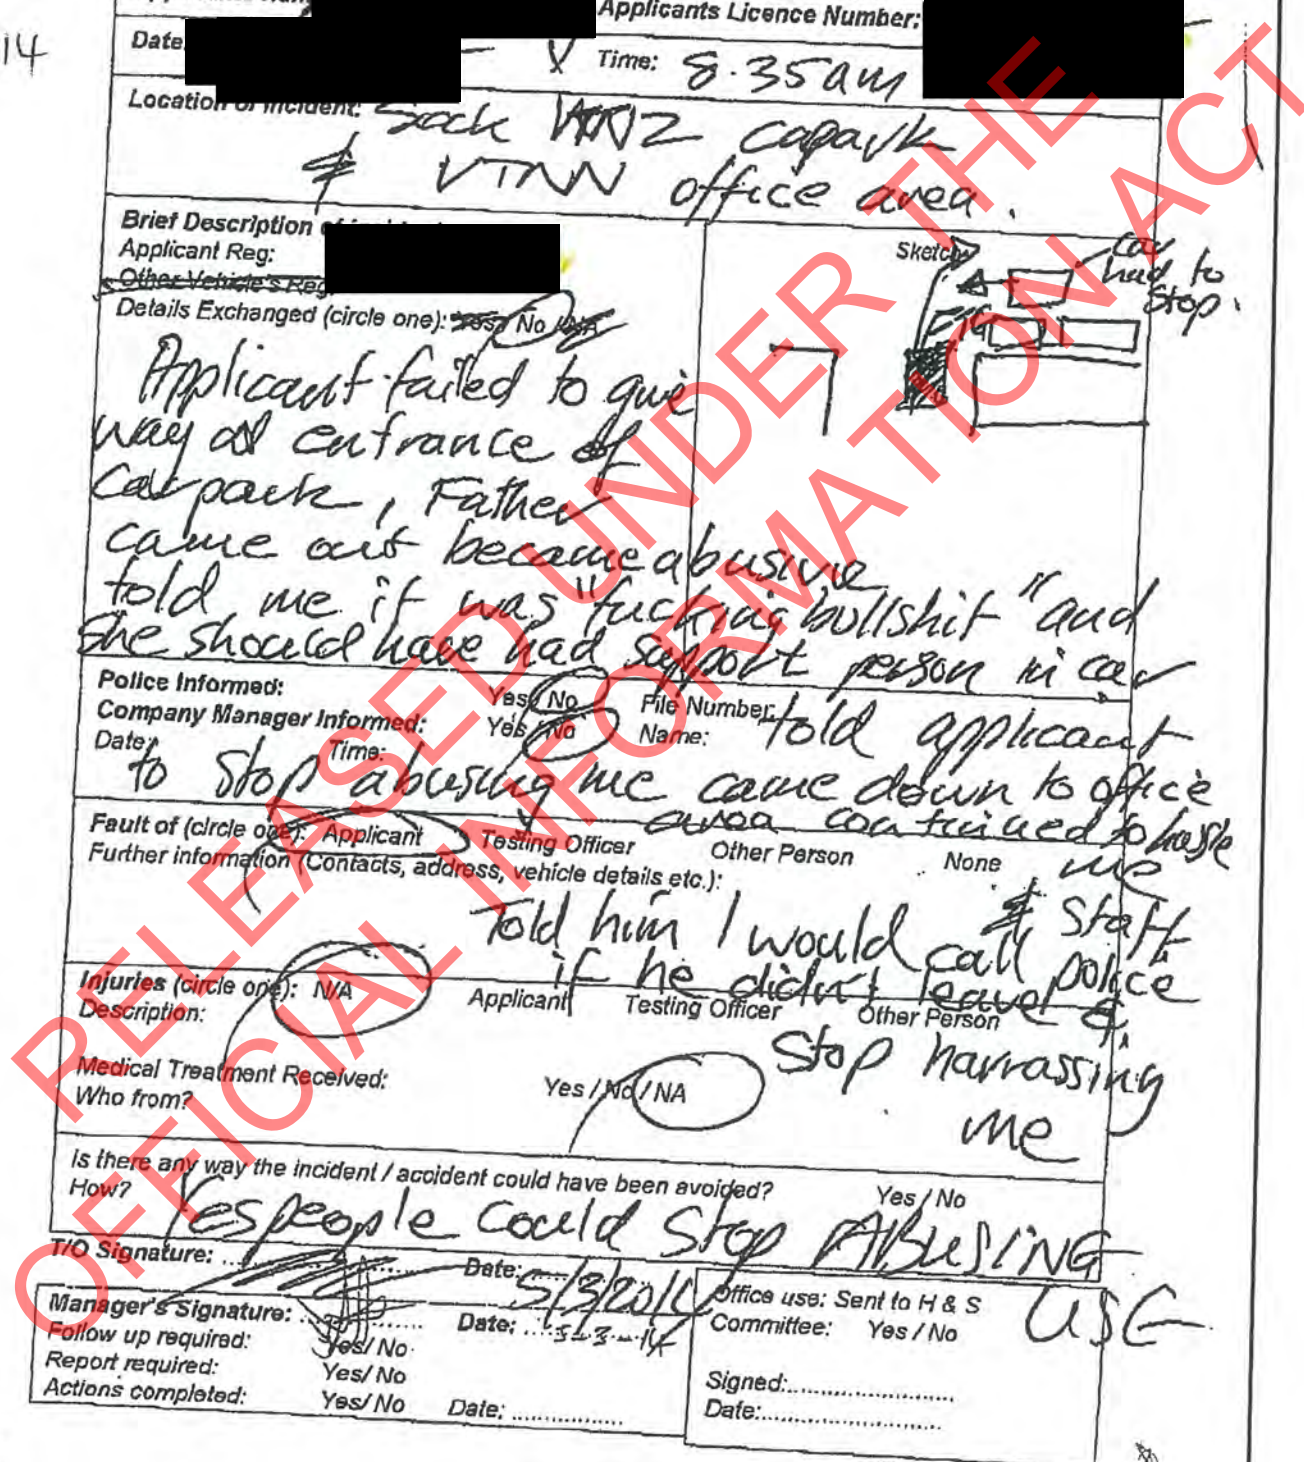 Applicants Licence Number:
14
Date:
Time: 8.35am
Location of Incident: carpark
& VTNZ office area.
Brief Description of
Applicant Reg:
Other Vehicle's Reg
Details Exchanged (circle one): Yes / No / NA
Sketch
Car
had to
Stop.
Applicant failed to give
way at entrance of
Carpark, Father
came out became abusive
told me it was "fucking bullshit" and
She should have had support person in car
Police Informed: Yes / No File Number:
Company Manager Informed: Yes / No Name: told applicant
Date: Time:
to stop abusing me came down to office
area continued to hassle
me
Fault of (circle one): Applicant Testing Officer Other Person None
Further information (Contacts, address, vehicle details etc.):
& Staff
Told him I would call police
if he didn't leave &
Stop harrassing
me
Injuries (circle one): N/A Applicant Testing Officer Other Person
Description:
Medical Treatment Received: Yes / No / NA
Who from?
Is there any way the incident / accident could have been avoided? Yes / No
How? Yes people could Stop ABUSING
USE
T/O Signature: Date: 5/3/2014
Manager's Signature: Date: 5-3-14
Follow up required: Yes/ No
Report required: Yes/ No
Actions completed: Yes/ No Date:
Office use: Sent to H & S
Committee: Yes / No
Signed:
Date:
RELEASED UNDER THE
OFFICIAL INFORMATION ACT